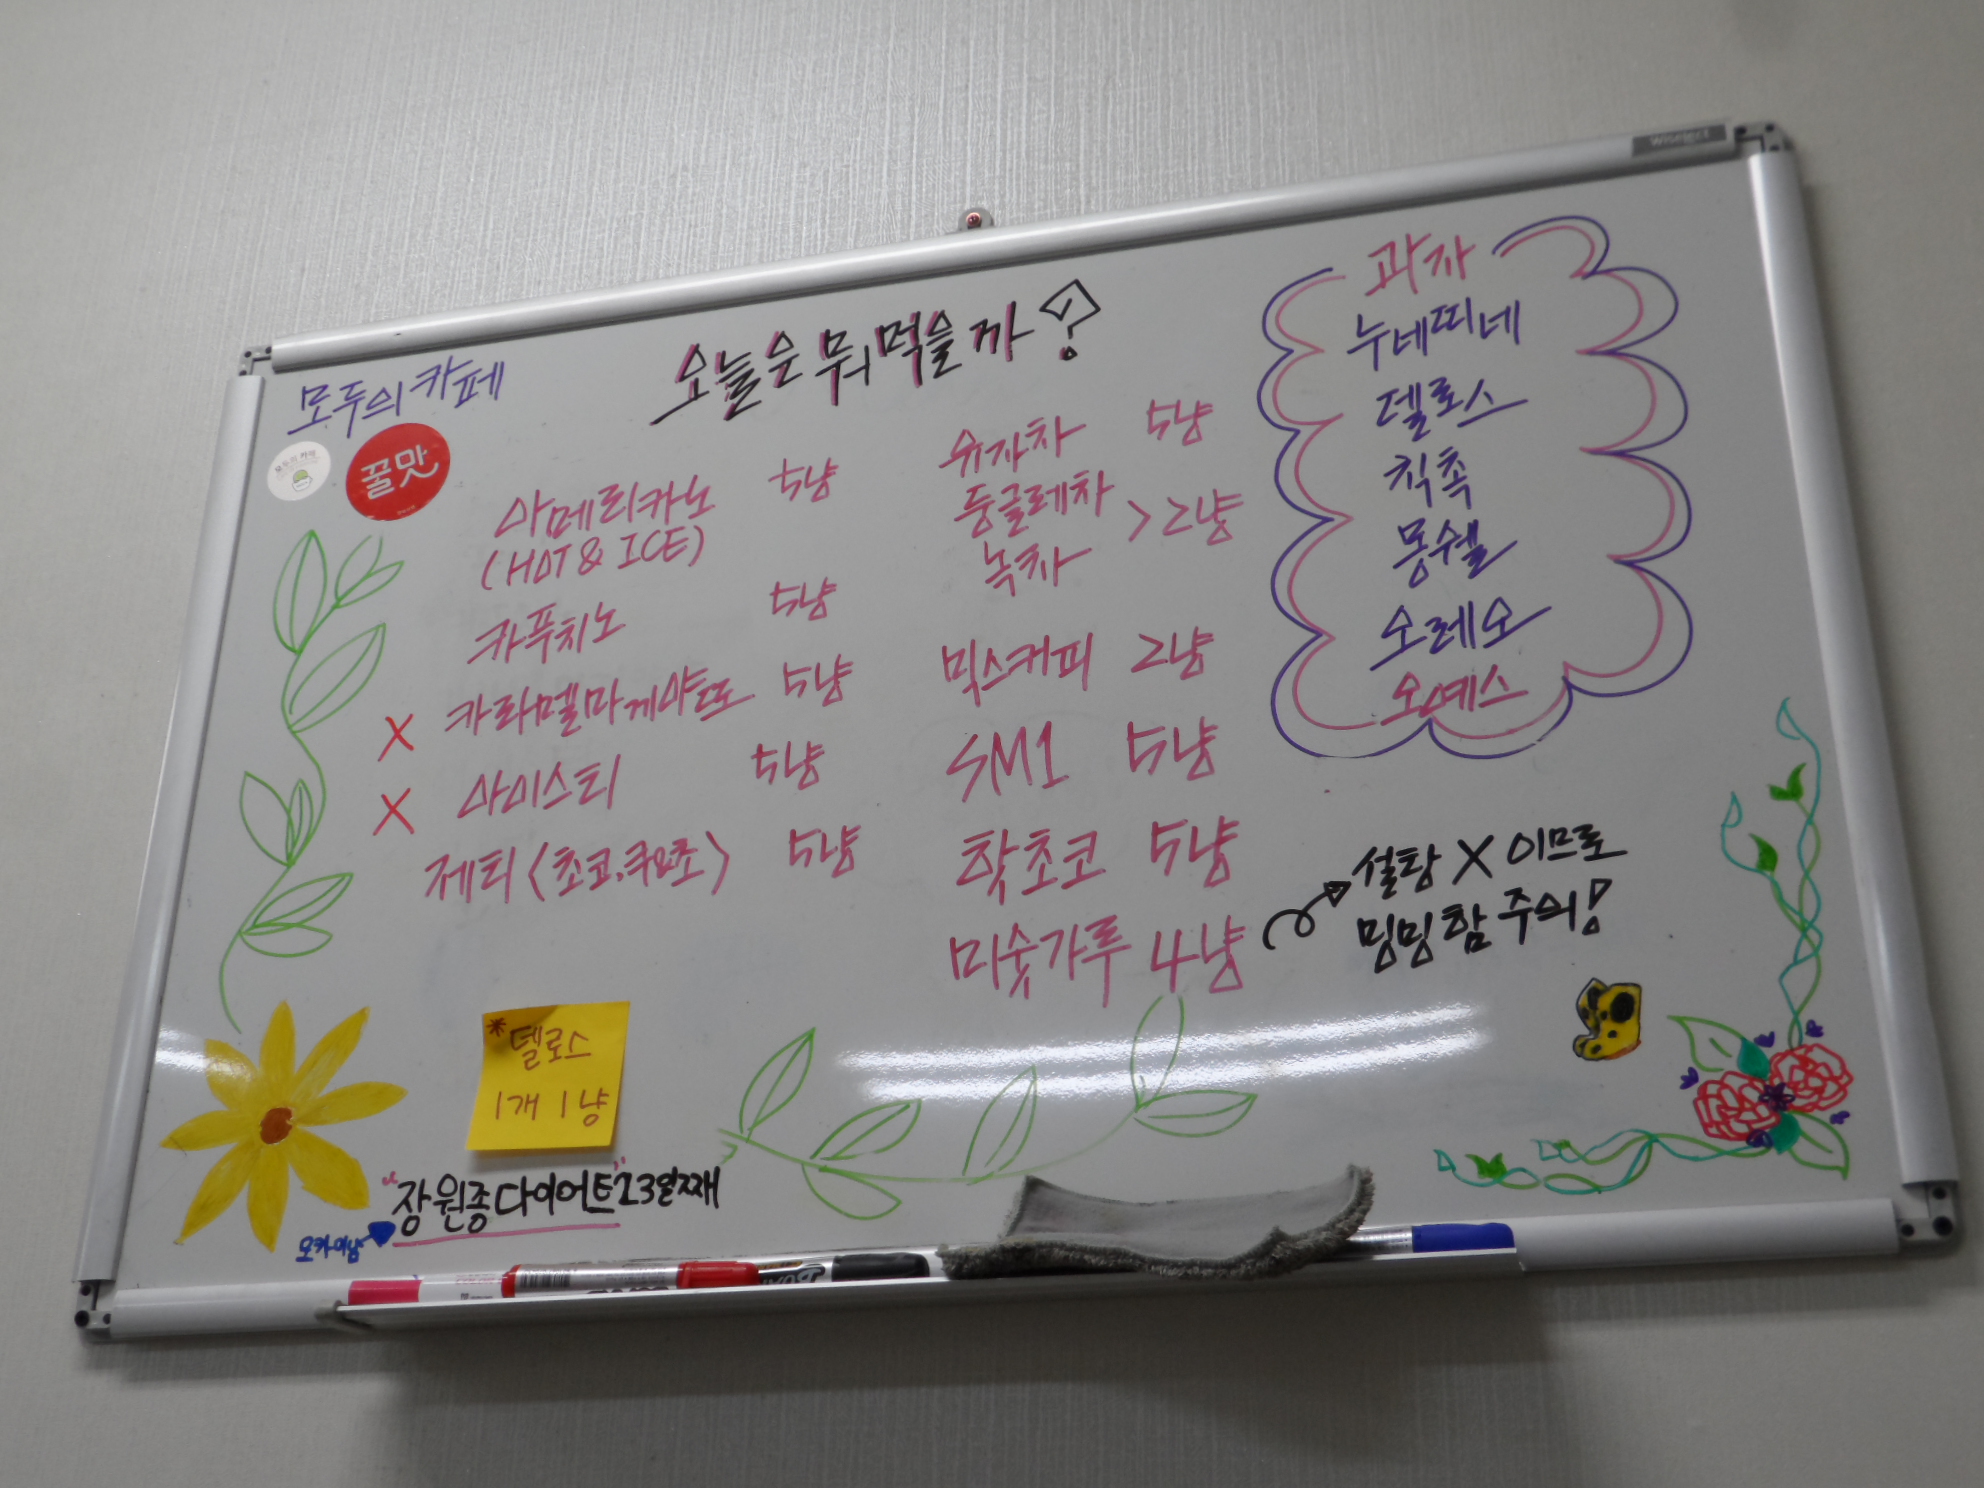 모두의 카페
꿀맛
오늘은 뭐 먹을까?
아메리카노 5냥
(HOT & ICE)
카푸치노 5냥
X 카라멜마께야또 5냥
X 아이스티 5냥
제티 <초코, 쿠앤쵸> 5냥
유자차 5냥
둥글레차 > 2냥
녹차
믹스커피 2냥
SM1 5냥
핫초코 5냥
미숫가루 4냥
설탕 X 이므로
밍밍함 주의!
과자
누네띠네
델로스
칙촉
몽쉘
오레오
오예스
*델로스
1개 1냥
"장원종다이어트" 23일째